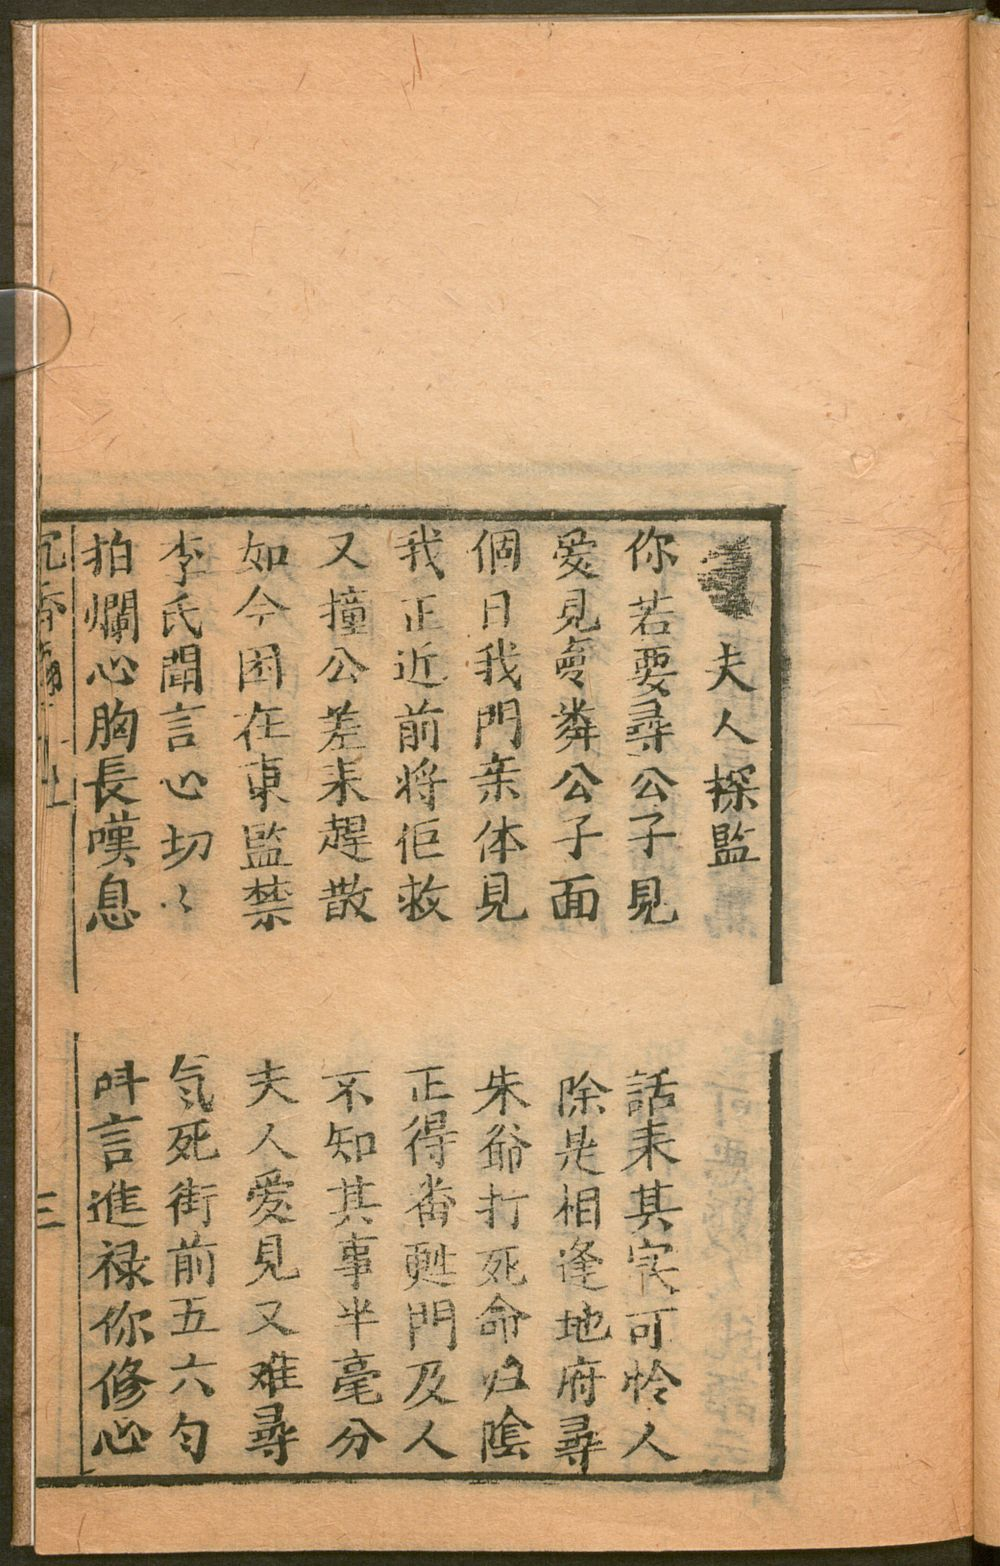 夫人探監
你若要尋公子見 話来其实可怜人
爱見粦公子面 除是相逢地府尋
個日我門亲体見 朱爺打死命归陰
我正近前将佢救 正得畨甦門及人
又撞公差来趕散 不知其事半毫分
如今困在東監禁 夫人爱見又难尋
李氏聞言心切々 気死街前五六匀
拍爛心胸長嘆息 呌言進禄你修心
沉香 上 三